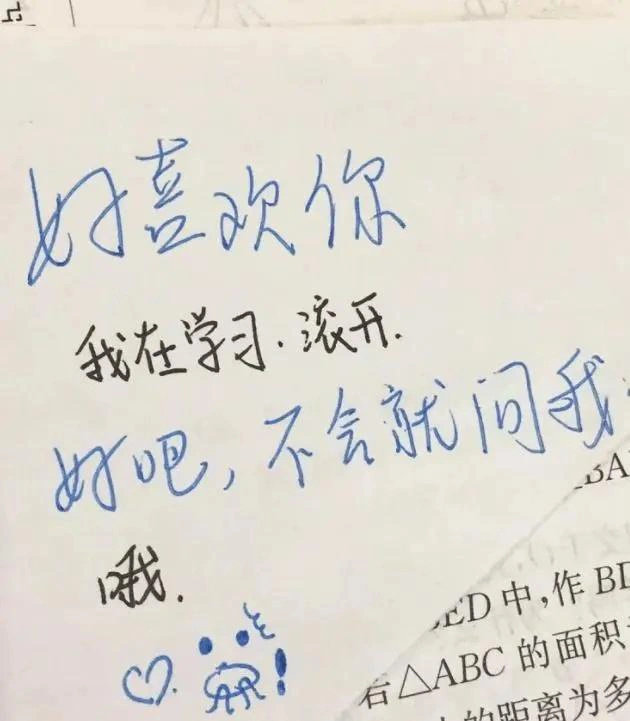 好喜欢你
我在学习.滚开.
好吧,不会就问我
哦.
BA
ED中,作BD
若△ABC的面积
的距离为多